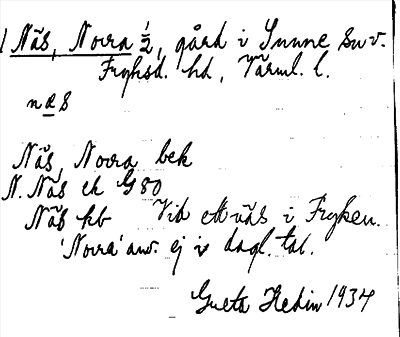 Näs, Norra 1/2, gård i Sunne sv.
Fryksd. hd, Värml. l.
næs
Näs, Norra bek
N. Näs ek G 80
Näs kb Vid ett näs i Fryken.
'Norra' anv. ej i dagl. tal.
Greta Hedin 1934